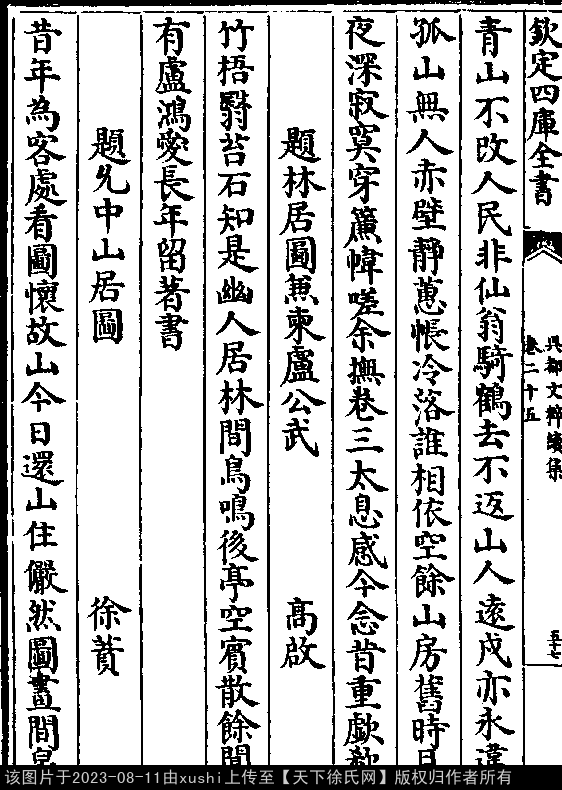 欽定四庫全書
吳都文粹續集
卷二十五
五十七
青山不改人民非仙翁騎鶴去不返山人遠戍亦永違
孤山無人赤壁靜蕙帳冷落誰相依空餘山房舊時月
夜深寂寞穿簾幃嗟余撫卷三太息感今念昔重歔欷
題林居圖兼柬盧公武
高啟
竹梧翳苔石知是幽人居林間鳥鳴後亭空賓散餘閒
有盧鴻愛長年留著書
題允中山居圖
徐賁
昔年為客處看圖懷故山今日還山住儼然圖畫間
该图片于2023-08-11由xushi上传至【天下徐氏网】版权归作者所有